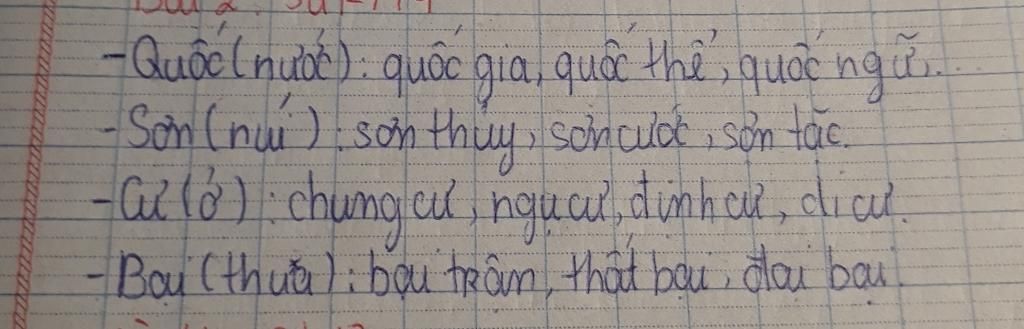 Bài 2: SGK-T71
- Quốc (nước): quốc gia, quốc thể, quốc ngữ,...
- Sơn (núi): sơn thủy, sơn cước, sơn tặc.
- Cư (ở): chung cư, ngụ cư, định cư, di cư.
- Bại (thua): bại trận, thất bại, đại bại